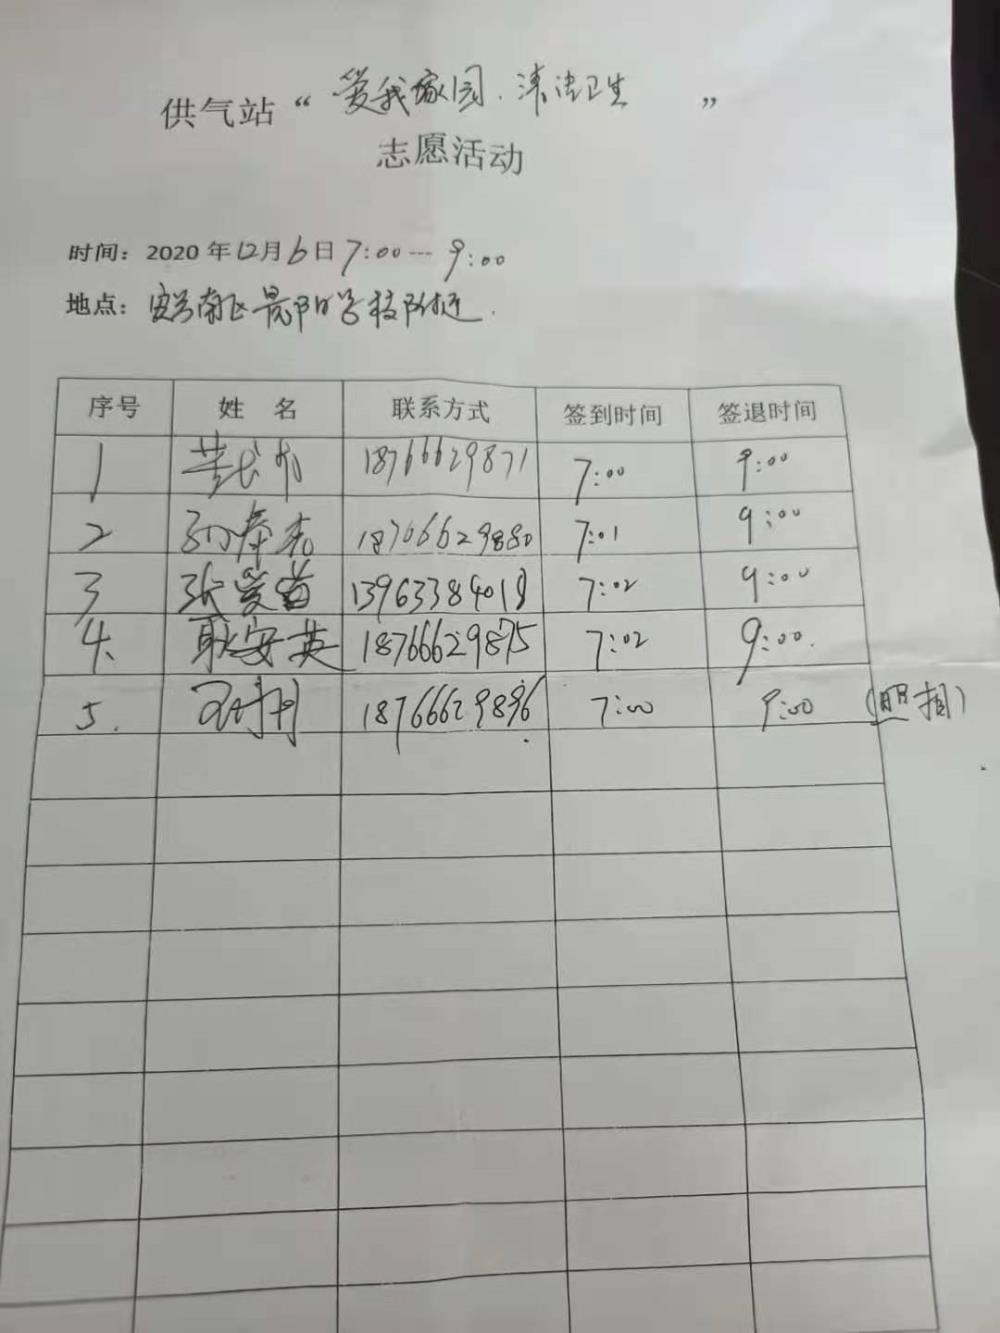 供气站“爱我家园.清洁卫生”
志愿活动
时间：2020年12月6日7:00---9:00
地点：南区晨阳学校附近.
序号 姓名 联系方式 签到时间 签退时间
1 18766629871 7:00 9:00
2 孙奉杰 18766629880 7:01 9:00
3 张爱苗 13963384018 7:02 9:00
4. 耿安英 18766629875 7:02 9:00.
5. 18766629896 7:00 9:00 (照相)